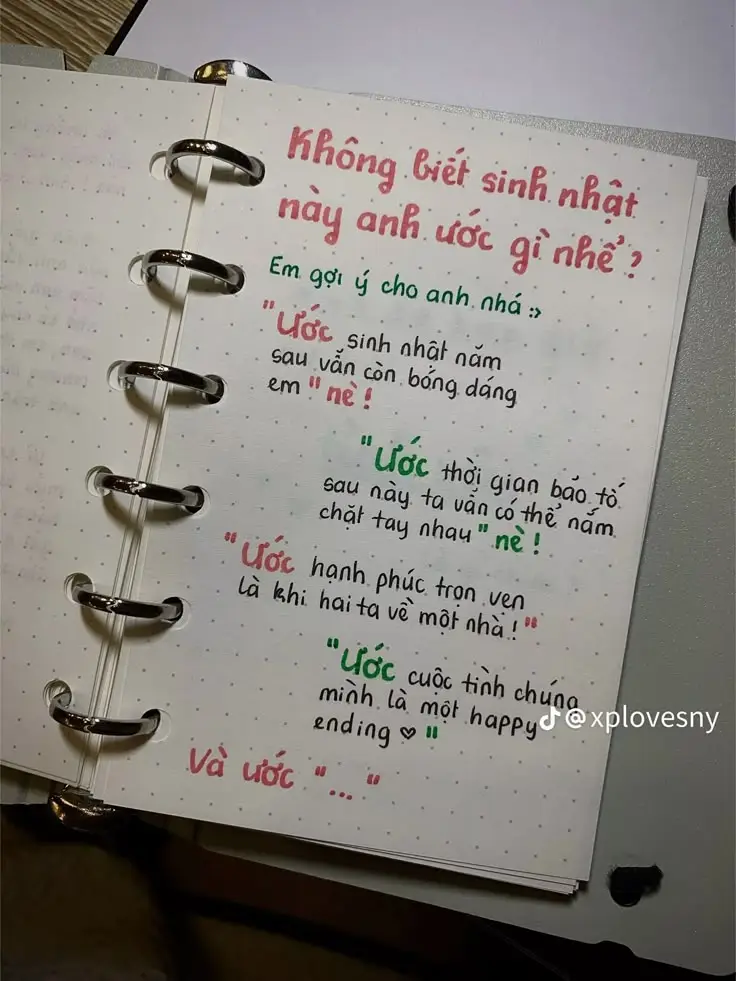 Không biết sinh nhật
này anh ước gì nhể?
Em gợi ý cho anh nhá :>
"Ước sinh nhật năm
sau vẫn còn bóng dáng
em" nè!
"Ước thời gian bão tố
sau này ta vẫn có thể nắm
chặt tay nhau" nè!
"Ước hạnh phúc trọn vẹn
là khi hai ta về một nhà!"
"Ước cuộc tình chúng
mình là một happy
ending ♡"
Và ước "..."
@xplovesny